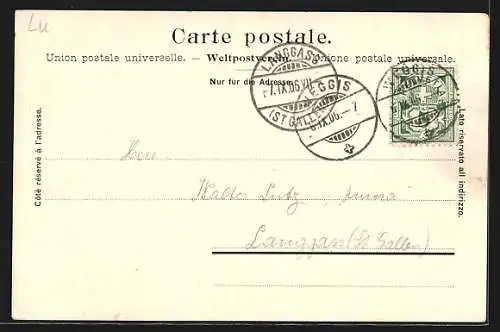 LU
Carte postale.
Union postale universelle. — Weltpostverein. — Unione postale universale.
Nur für die Adresse.
LANGGASS
7.IX.06.VII
(ST GALLEN)
WEGGIS
6.IX.06.–7
WEGGIS
Côté réservé à l'adresse.
Lato riservato all indirizzo.
Herrn
Walter Lutz
Langgass (St. Gallen)